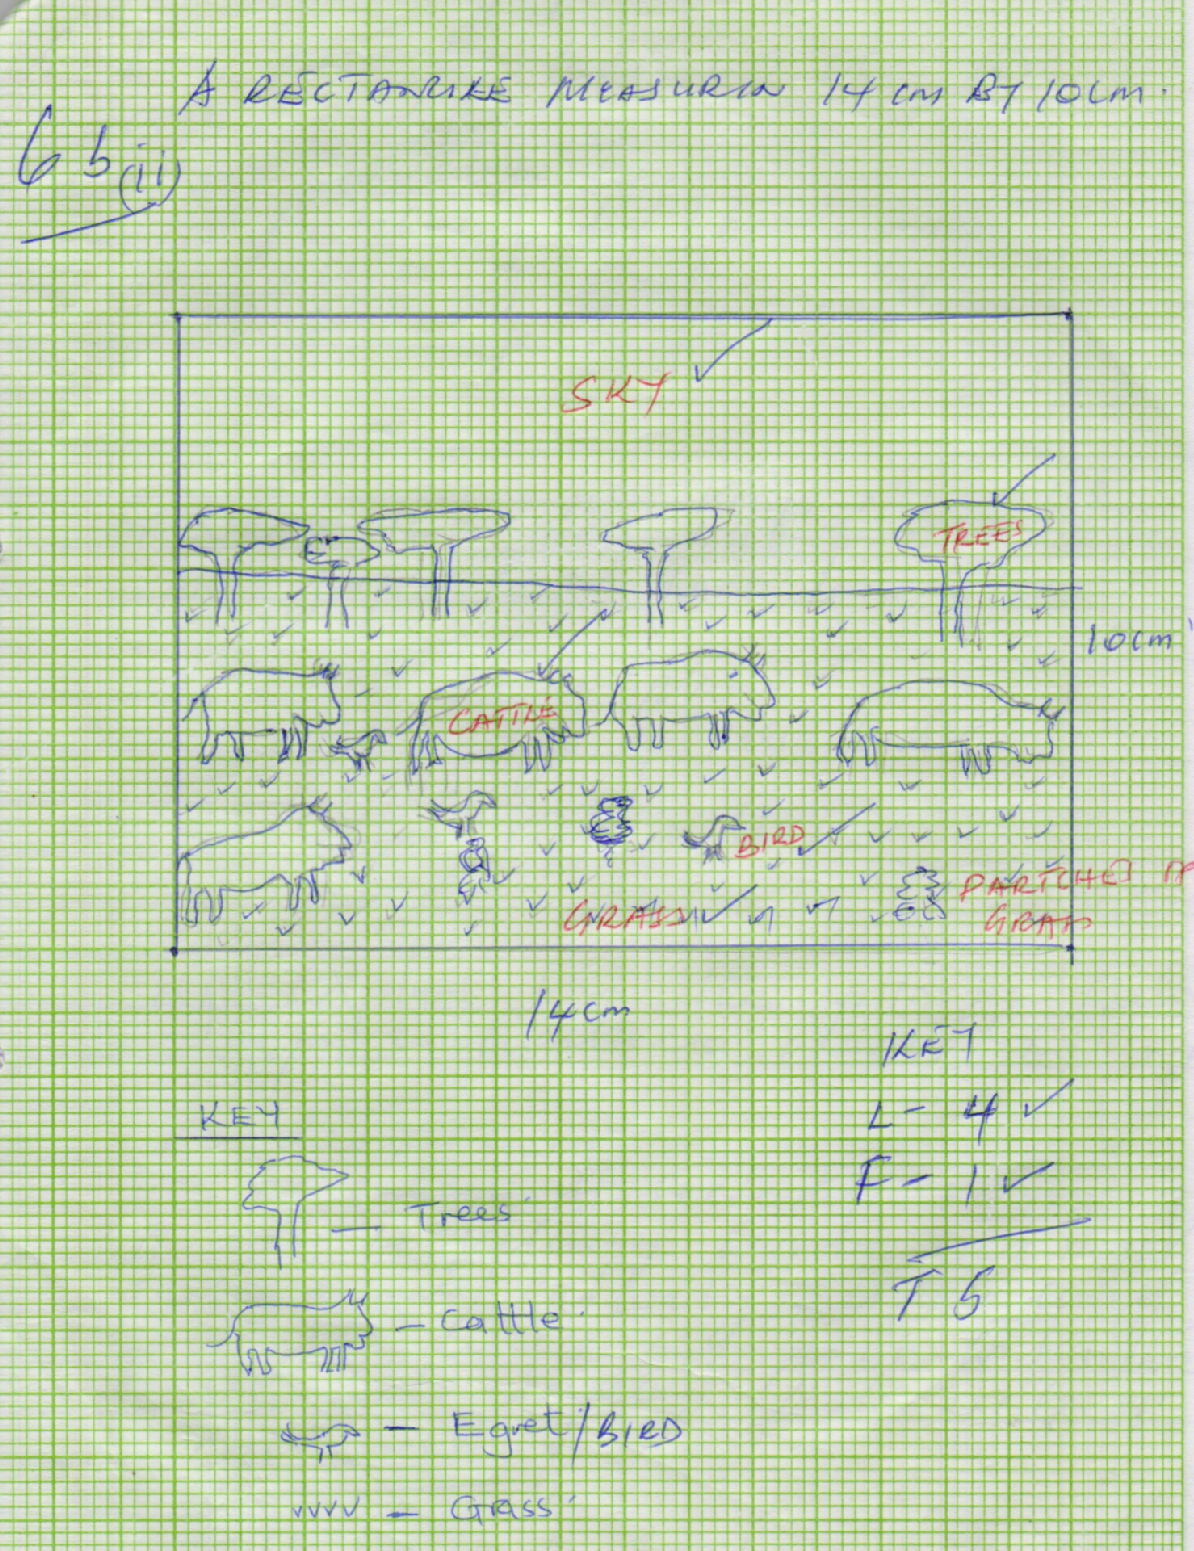 A RECTANGLE MEASURIN 14 cm BY 10cm.
6 b (ii)
SKY
TREES
10cm
CATTLE
BIRD
PARTCHED
GRASS
GRASS
14cm
KEY
L - 4
F - 1
T 5
KEY
Trees
Cattle
Egret/BIRD
vvvv - Grass